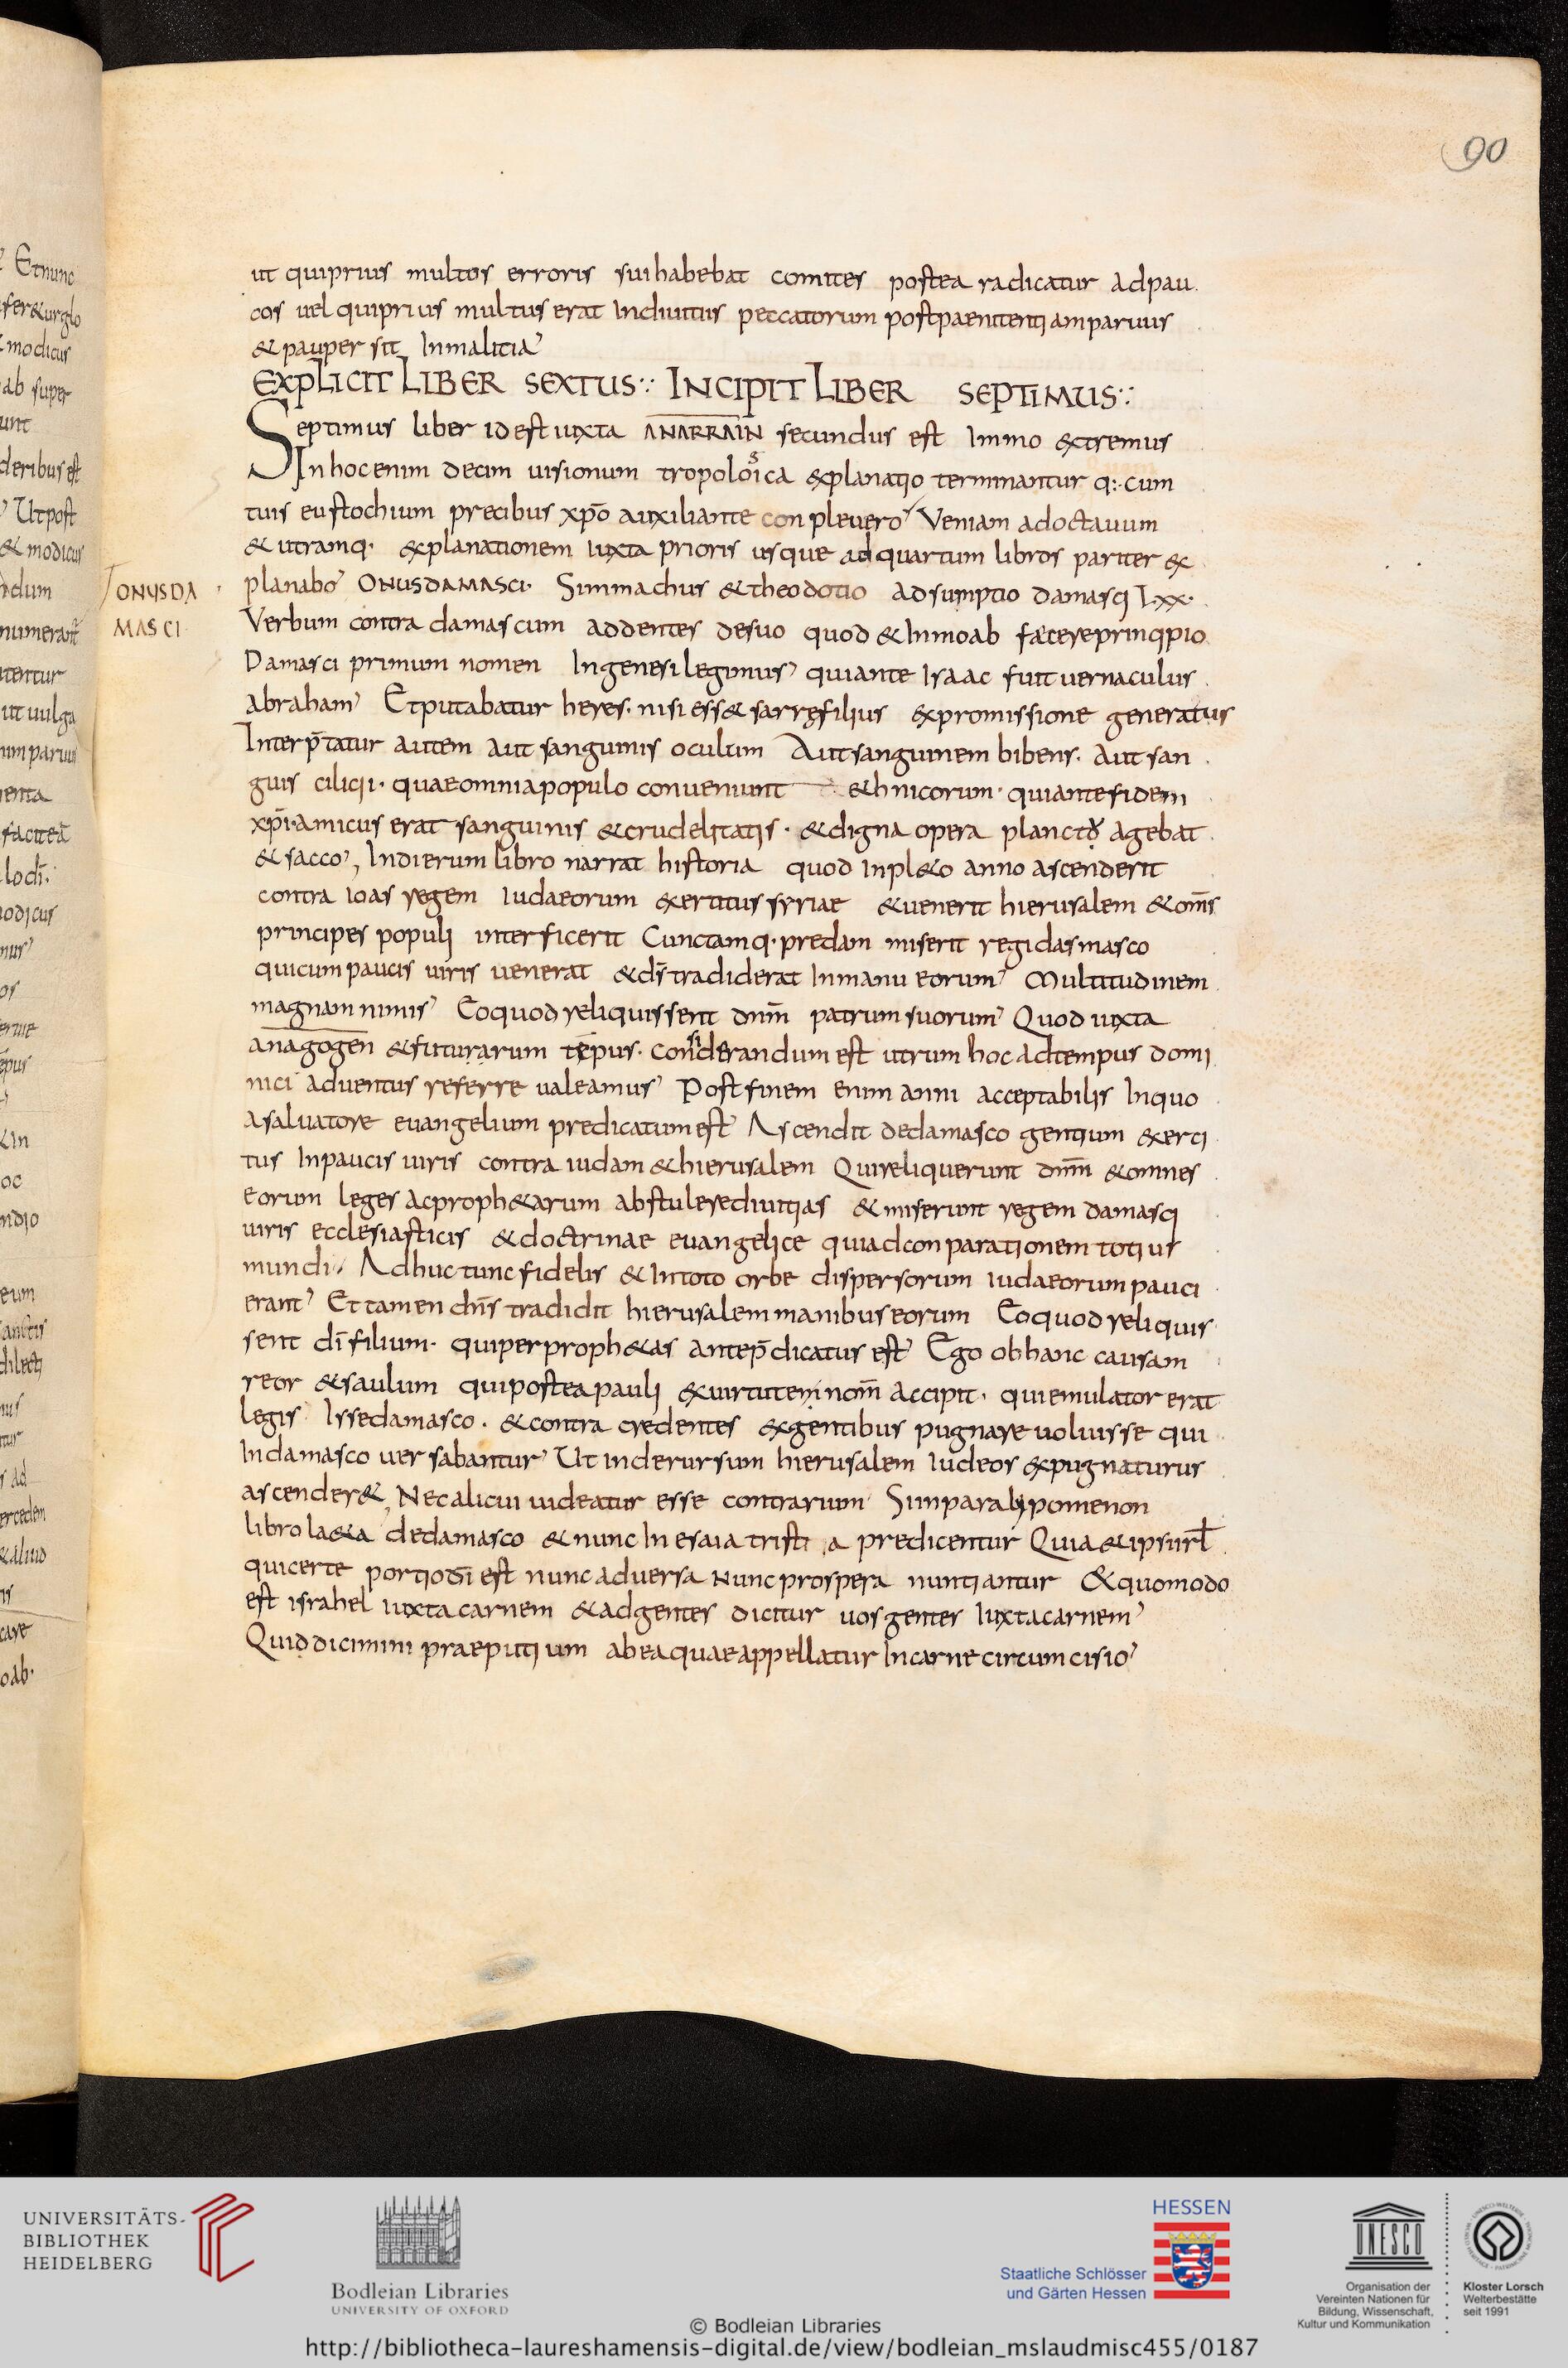 90
ut qui prius multos erroris sui habebat comites postea radicatur ad pau
cos uel qui prius multus erat In diuitiis peccatorum post paenitentiam paruus
& pauper sit In malitia
EXPLICIT LIBER SEXTUS INCIPIT LIBER SEPTIMUS
Septimus liber id est iuxta secundus est Immo extremus
In hoc enim decim uisionum explanatio terminantur q: cum
tuis eustochium precibus xp̄o auxiliante conpleuero Veniam ad octauum
& utramq· explanationem Iuxta prioris usque ad quartum libros pariter ex
planabo ONUS DAMASCI· Simmachus & theodotio adsumptio damasci Lxx·
ONUS DA
MASCI
Verbum contra damascum addentes de suo quod & In moab facere principio
Damasci primum nomen In genesi legimus qui ante Isaac fuit uernaculus
abraham Et putabatur heres· nisi ess& sarrę filius ex promissione generatus
Interp̄tatur autem aut sanguinis oculum Aut sanguinem bibens· Aut san
guis cilicii· quae omnia populo conueniunt &hnicorum· qui ante fidem
xp̄i· amicus erat sanguinis & crudelitatis· & digna opera agebat
& sacco, In dierum libro narrat historia quod In pl&o anno ascenderit
contra ioas regem Iudaeorum exertitus syriae & uenerit hierusalem & om̄s
principes populi interficerit Cunctamq· predam miserit regi dasmasco
qui cum paucis uiris uenerat & dn̄s tradiderat In manu eorum Multitudinem
magnam nimis Eo quod reliquissent dn̄m patrum suorum Quod iuxta
anagogen & futurarum tēpus· considerandum est utrum hoc ad tempus domi
nici aduentus referre ualeamus Post finem enim anni acceptabilis In quo
a saluatore euangelium predicatum est Ascendit de damasco gentium exerci
tus In paucis uiris contra iudam & hierusalem Qui reliquerunt dn̄m & omnes
eorum leges ac proph&arum abstulere diuitias & miserunt regem damasci
uiris ecclesiasticis & doctrinae euangelice qui ad conparationem totius
mundi, Adhuc tunc fidelis & In toto orbe dispersorum iudaeorum pauci
erant Et tamen dn̄s tradidit hierusalem manibus eorum Eo quod reliquis
sent dī filium· qui per proph&as ante p̄dicatus est Ego ob hanc causam
reor & saulum qui postea pauli ex uirtutem nom̄ accipit· qui emulator erat
legis Isse damasco· & contra credentes ex gentibus pugnare uoluisse qui
In damasco uersabantur Ut inde rursum hierusalem Iudeos expugnaturus
ascender& Nec alicui uideatur esse contrarum Sim paralypomenon
libro la&a de damasco & nunc In esaia tristi a predicentur Quia & ips isrl̄
qui certe portio dn̄i est nunc aduersa nunc prospera nuntiantur Et quomodo
est israhel iuxta carnem & ad gentes dicitur uos gentes Iuxta carnem
Quid dicimini praeputium ab ea quae appellatur In carne circumcisio
Et nunc
modicus
ab super
unt
deribus est
Ut post
& modicus
ut uulga
UNIVERSITÄTS-
BIBLIOTHEK
HEIDELBERG
Bodleian Libraries
UNIVERSITY OF OXFORD
HESSEN
Staatliche Schlösser
und Gärten Hessen
UNESCO
Organisation der
Vereinten Nationen für
Bildung, Wissenschaft,
Kultur und Kommunikation
Kloster Lorsch
Welterbestätte
seit 1991
© Bodleian Libraries
http://bibliotheca-laureshamensis-digital.de/view/bodleian_mslaudmisc455/0187